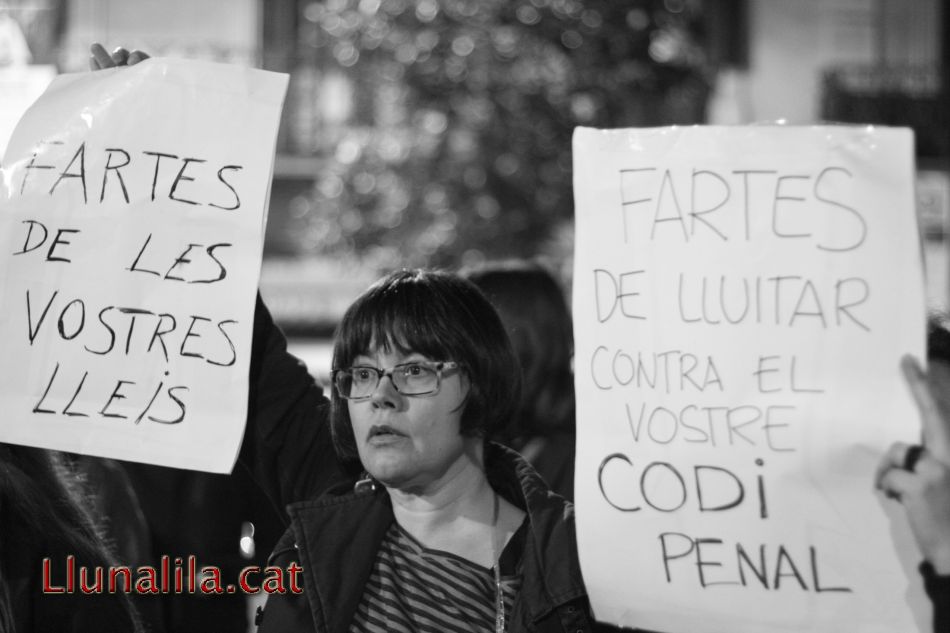 FARTES
DE LES
VOSTRES
LLEiS
FARTES
DE LLUITAR
CONTRA EL
VOSTRE
CODi
PENAL
Llunalila.cat